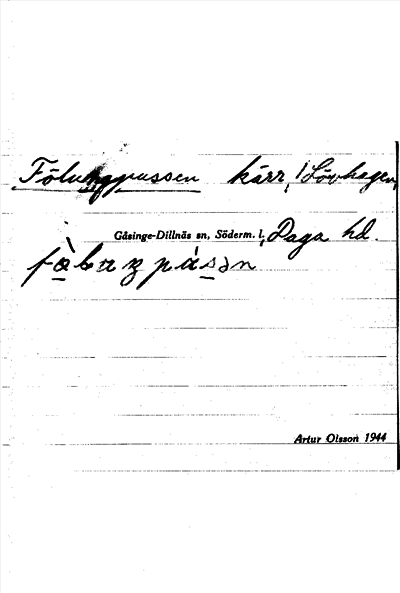 Fölungpussen kärr, Lövhagen,
Gåsinge-Dillnäs sn, Söderm. l., Daga hd.
Artur Olsson 1944